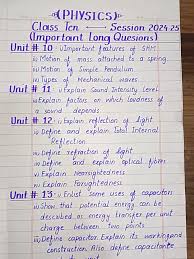 (PHYSICS)
Class Ten Session 2024-25
(Important Long Quesions)
Unit # 10 Important features of SHM
Motion of mass attached to a spring.
Motion of Simple Pendulum
Types of Mechanical waves
Unit # 11 Explain Sound Intensity Level
Explain Factors on which loudness of
a sound depends
Unit # 12 Explain reflection of light
Define and explain Total Internal
Reflection
Define refraction of light
Define and explain optical fibers
Explain Nearsightedness
Explain Farsightedness
Unit # 13 Enlist some uses of capacitors
Show that potential energy can be
described as energy transfer per unit
charge between two points
Define capacitor. Explain its working and
construction. Also define capacitance